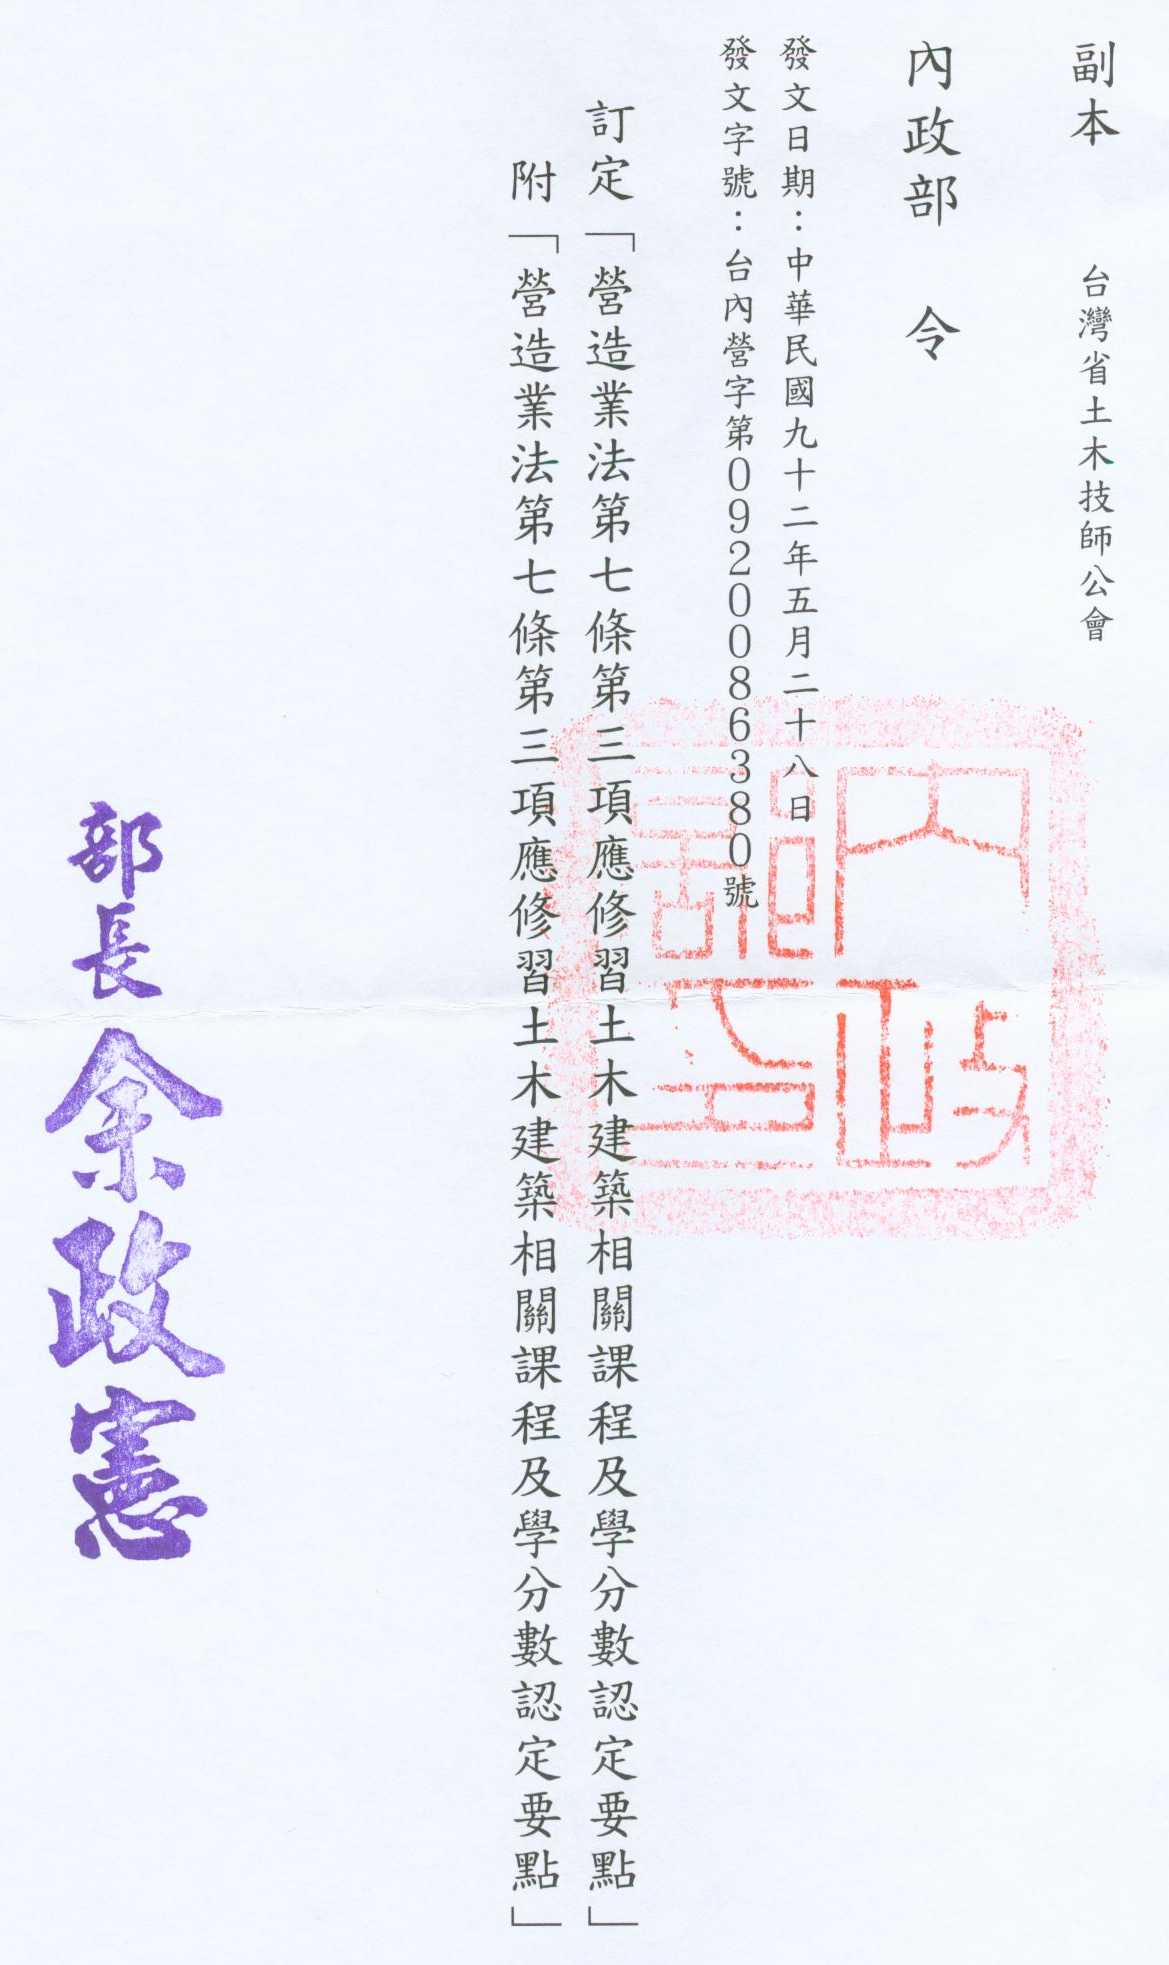 副本
台灣省土木技師公會
內政部 令
發文日期：中華民國九十二年五月二十八日
發文字號：台內營字第0920086380號
訂定「營造業法第七條第三項應修習土木建築相關課程及學分數認定要點」
附「營造業法第七條第三項應修習土木建築相關課程及學分數認定要點」
內政部印
部長余政憲